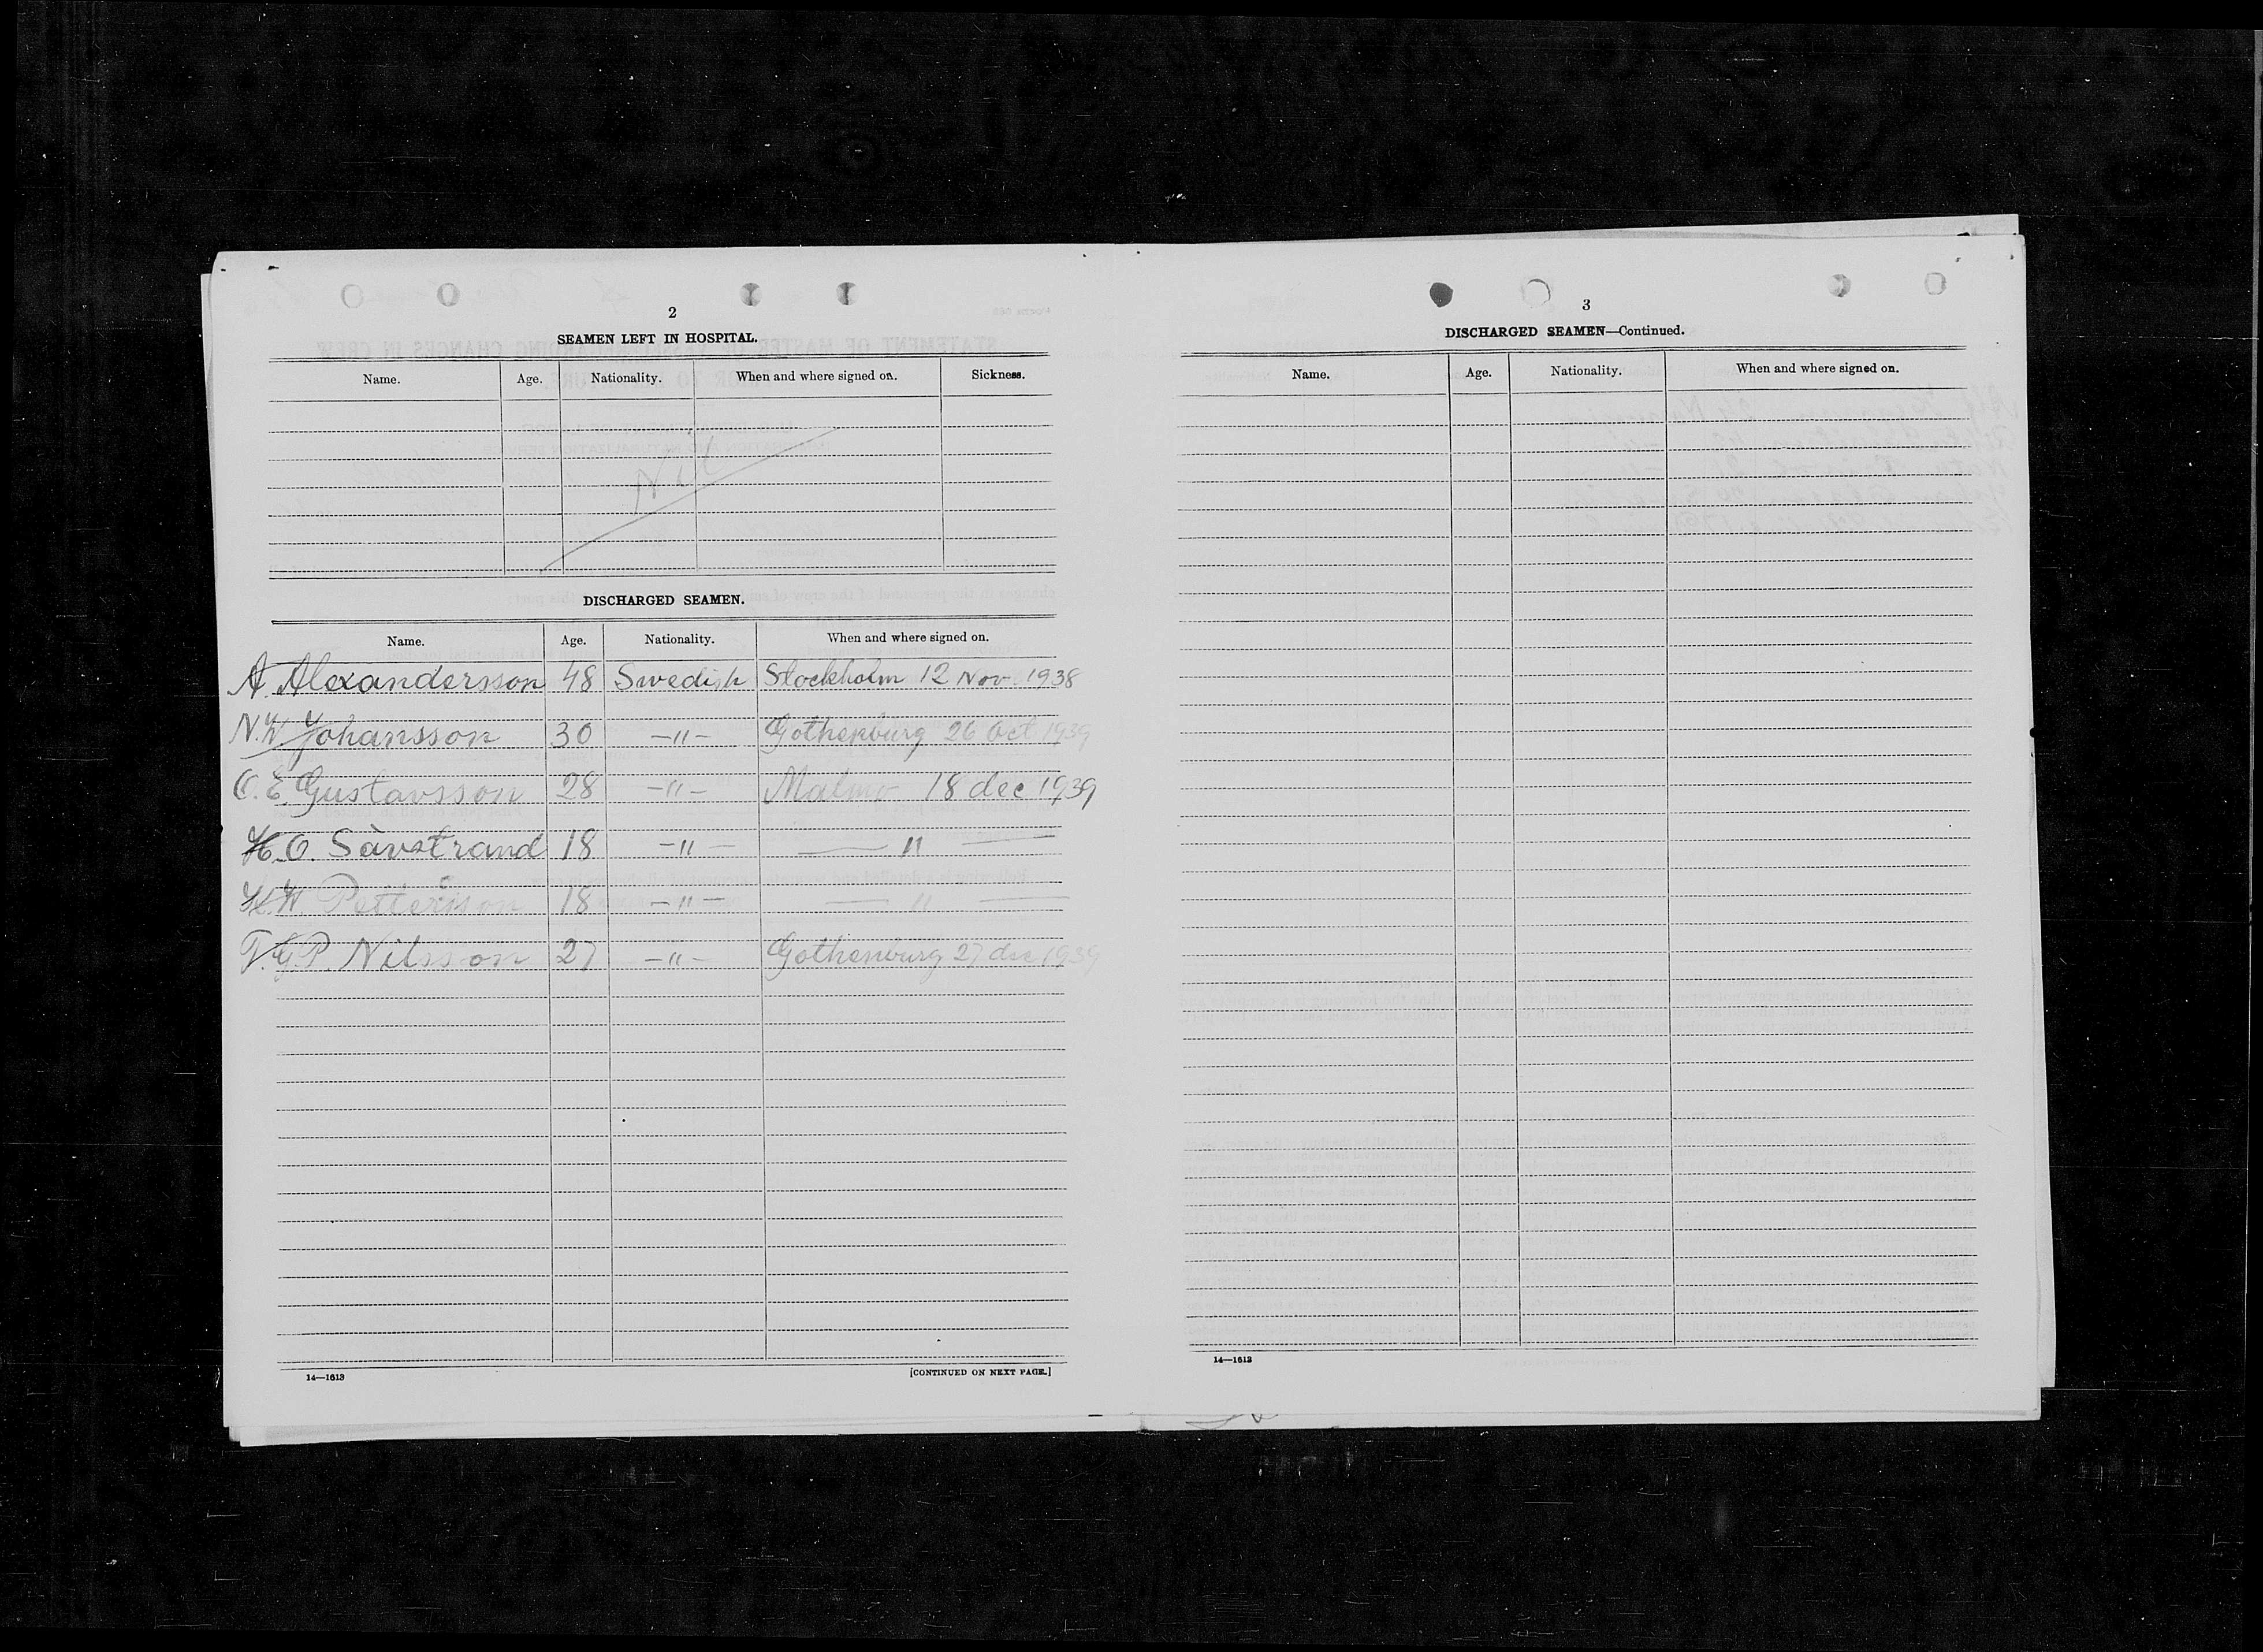 2
SEAMEN LEFT IN HOSPITAL.
Name. Age. Nationality. When and where signed on. Sickness.
Nil
DISCHARGED SEAMEN.
Name. Age. Nationality. When and where signed on.
A. Alexandersson 48 Swedish Stockholm 12 Nov. 1938
Johansson 30 —"— Gothenburg 26 Oct 1939
O. E. Gustavsson 28 —"— Malmö 18 dec 1939
H. O. Såvstrand 18 —"— —— " ——
Petterson 18 —"— —— " ——
T. G. P. Nilsson 27 —"— Gothenburg 27 dec 1939
14—1613
[CONTINUED ON NEXT PAGE.]
3
DISCHARGED SEAMEN—Continued.
Name. Age. Nationality. When and where signed on.
14—1613